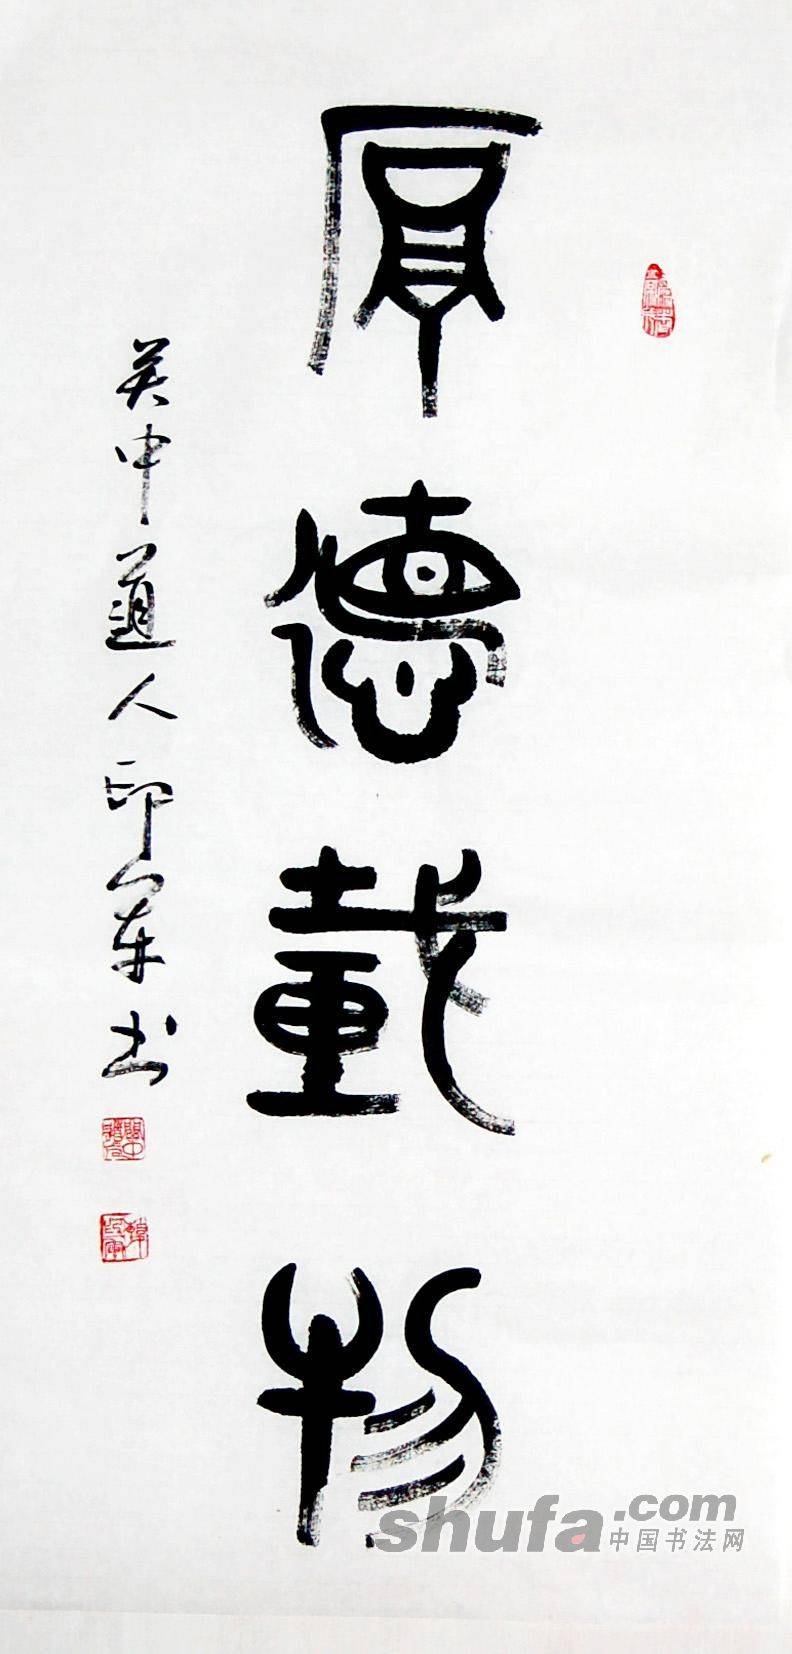 厚德载物
关中道人印军书
shufa.com
中国书法网